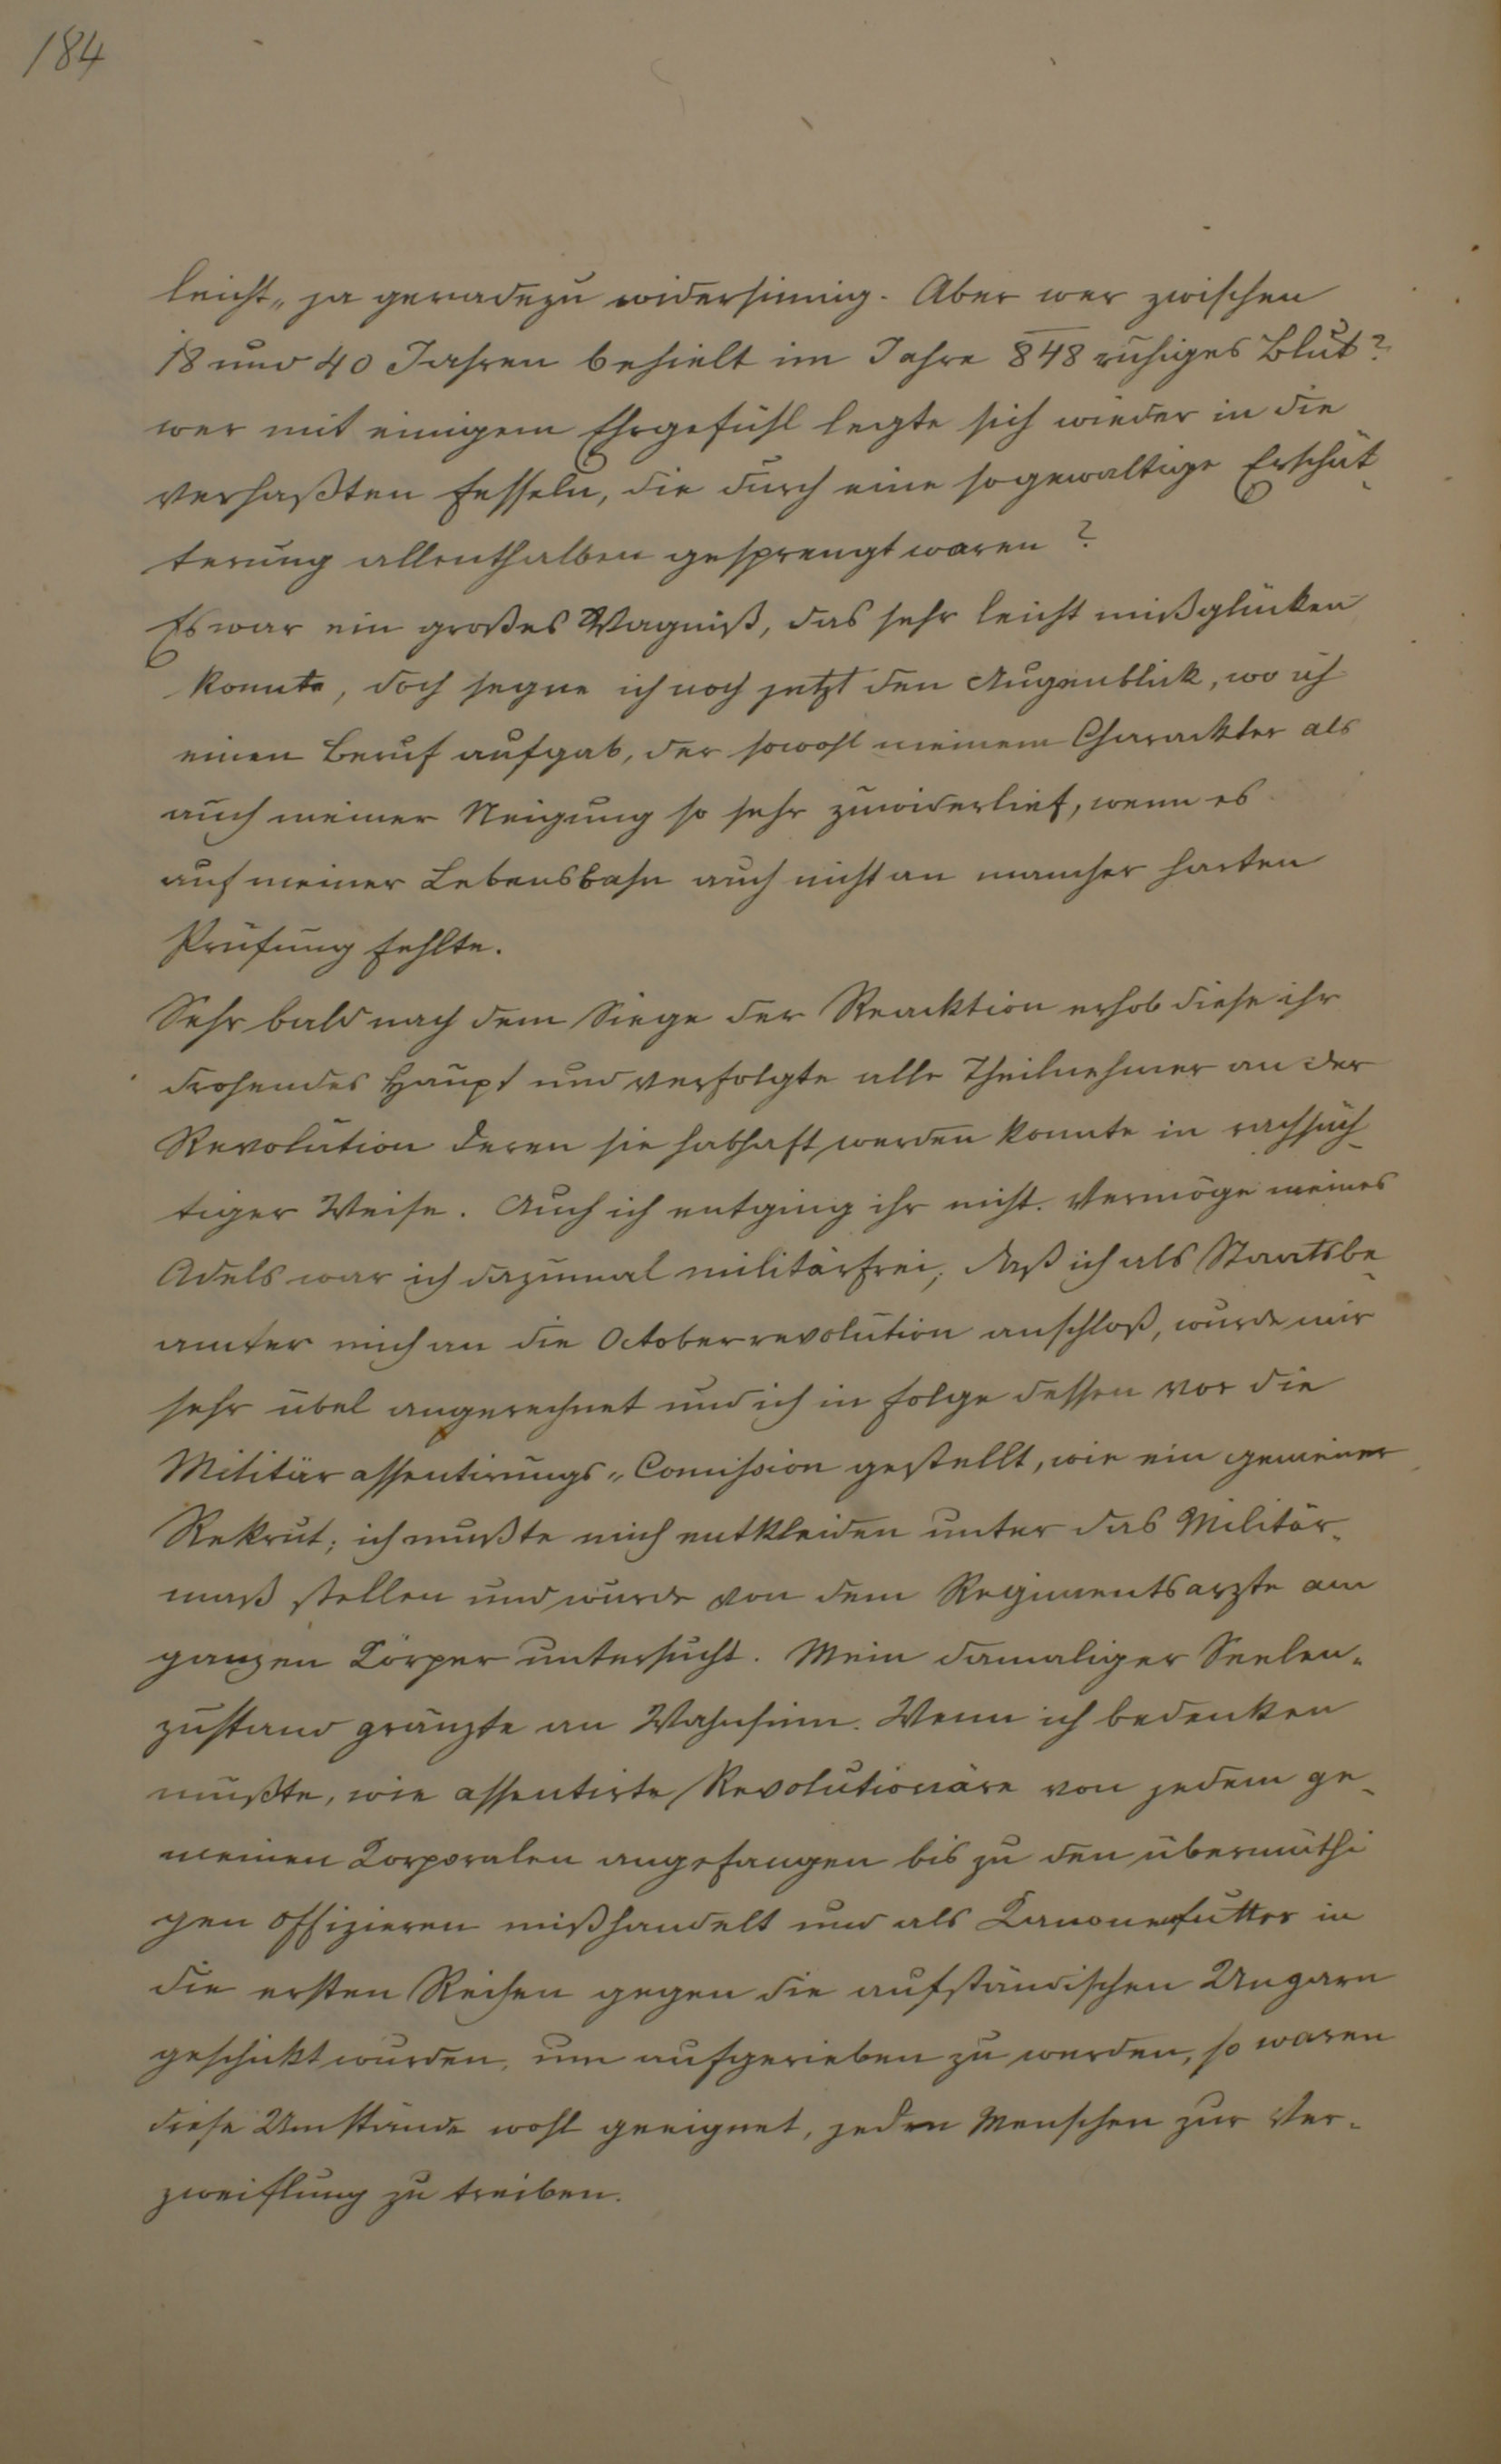 184
leicht„ ja geradezu widersinnig. Aber wer zwischen
18 und 40 Jahren behielt im Jahre 848 ruhiges Blut?
wer mit einigem Ehrgefühl legte sich wieder in die
verhaßten Fesseln, die durch eine sogewaltige Erschüt-
terung allenthalben gesprengt waren?
Es war ein großes Wagniß, das sehr leicht mißglücken
konnte, doch segne ich noch jetzt den Augenblick, wo ich
einen Beruf aufgab, der sowohl meinem Charackter als
auch meiner Neigung so sehr zuwiderlief, wenn es
auf meiner Lebensbahn auch nicht an mancher harten
Prüfung fehlte.
Sehr bald nach dem Siege der Reacktion erhob diese ihr
drohendes Haupt und verfolgte alle Theilnehmer an der
Revolution deren sie habhaft werden konnte in rachsüch-
tiger Weise. Auch ich entging ihr nicht. Vermöge meines
Adels war ich dazumal militärfrei; daß ich als Staatsbe-
amter mich an die Octoberrevolution anschloß, wurde mir
sehr übel angerechnet und ich in Folge dessen vor die
Militärassentirungs„Comission gestellt, wie ein gemeiner
Rekrut; ich mußte mich entkleiden unter das Militär-
maß stellen und wurde von dem Regimentsarzte am
ganzen Körper untersucht. Mein damaliger Seelen-
zustand gränzte an Wahnsinn. Wenn ich bedenken
mußte, wie assentirte Revolutionäre von jedem ge-
meinen Korporalen angefangen bis zu den übermüthi
gen Offizieren mißhandelt und als Kanonenfutter in
die ersten Reihen gegen die aufständischen Ungarn
geschickt wurden, um aufgerieben zu werden, so waren
diese Umstände wohl geeignet, jeden Menschen zur Ver-
zweiflung zu treiben.